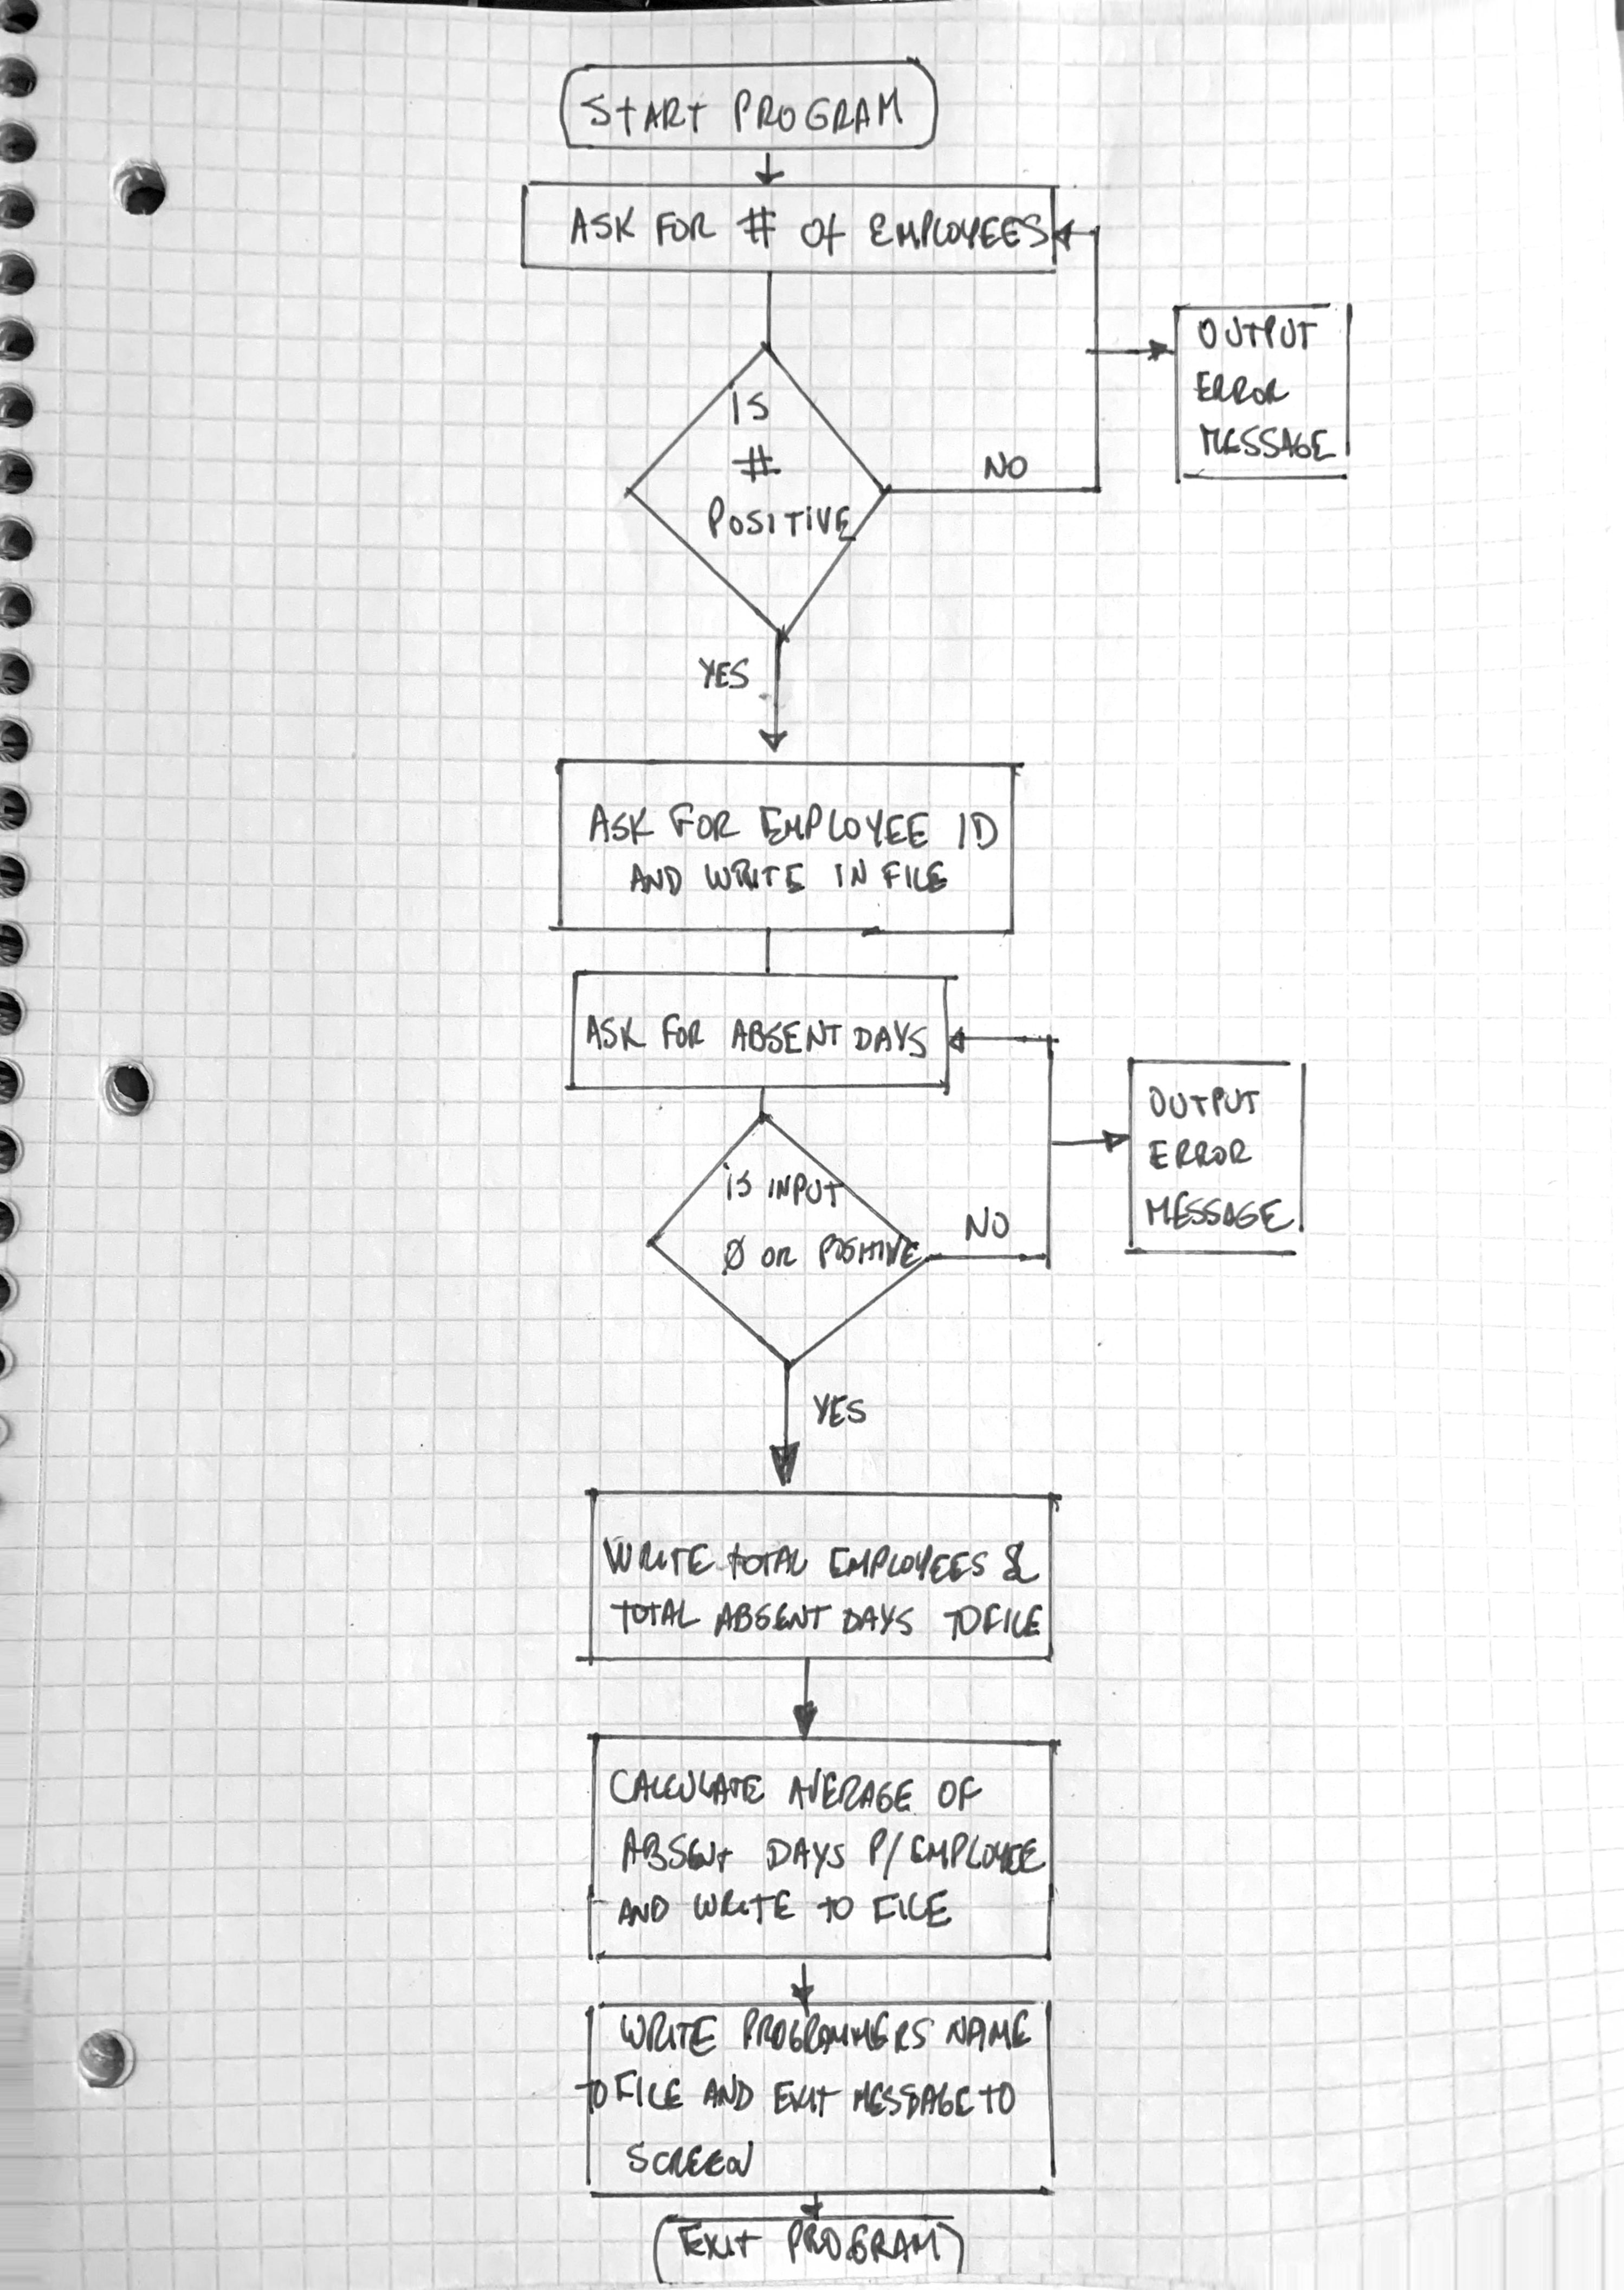 START PROGRAM
ASK FOR # OF EMPLOYEES
OUTPUT
ERROR
MESSAGE
IS
#
POSITIVE
NO
YES
ASK FOR EMPLOYEE ID
AND WRITE IN FILE
ASK FOR ABSENT DAYS
OUTPUT
ERROR
MESSAGE
IS INPUT
Ø OR POSITIVE
NO
YES
WRITE TOTAL EMPLOYEES &
TOTAL ABSENT DAYS TO FILE
CALCULATE AVERAGE OF
ABSENT DAYS P/EMPLOYEE
AND WRITE TO FILE
WRITE PROGRAMMERS NAME
TO FILE AND EXIT MESSAGE TO
SCREEN
EXIT PROGRAM